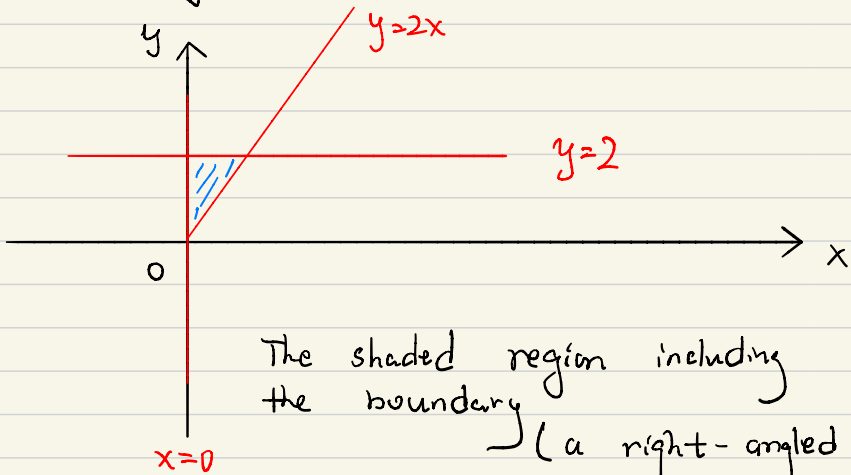 y
y=2x
y=2
0
x
The shaded region including
the boundary
(a right-angled
x=0